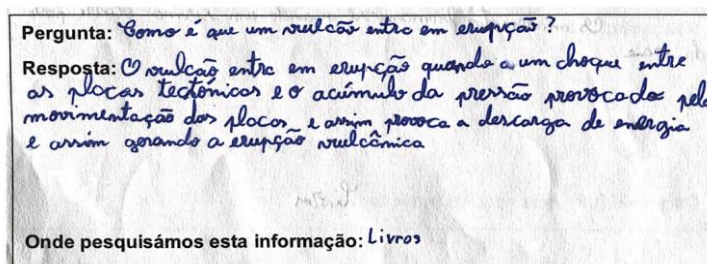 Pergunta: Como é que um vulcão entra em erupção?
Resposta: O vulcão entra em erupção quando a um choque entre
as placas tectónicas e o acúmulo da pressão provocada pela
movimentação das placas, e assim provoca a descarga de energia
e assim gerando a erupção vulcânica
Onde pesquisámos esta informação: Livros